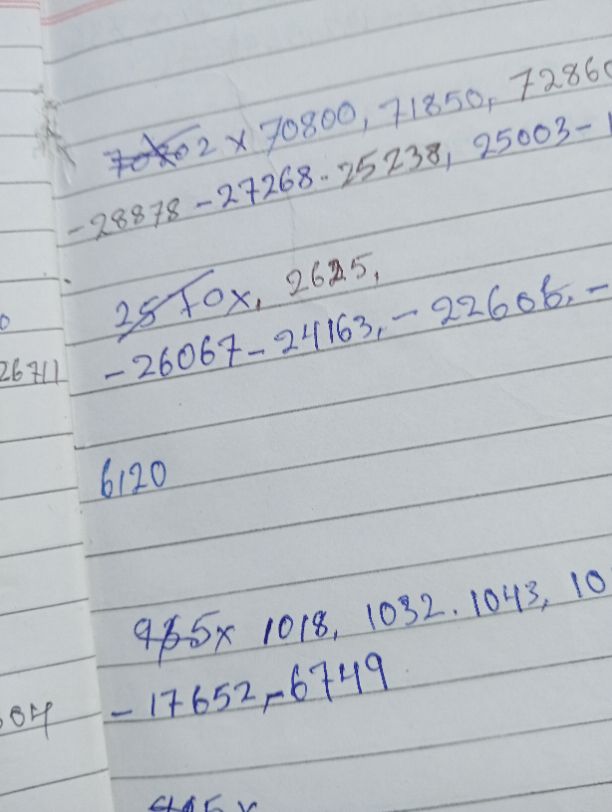 70802 x 70800, 71850, 7286
-28878 - 27268 - 25238, 25003 -
2570x, 2625,
26711 - 26067 - 24163, - 22606, -
6120
985x 1018, 1032. 1043, 10
04 - 17652, - 6749